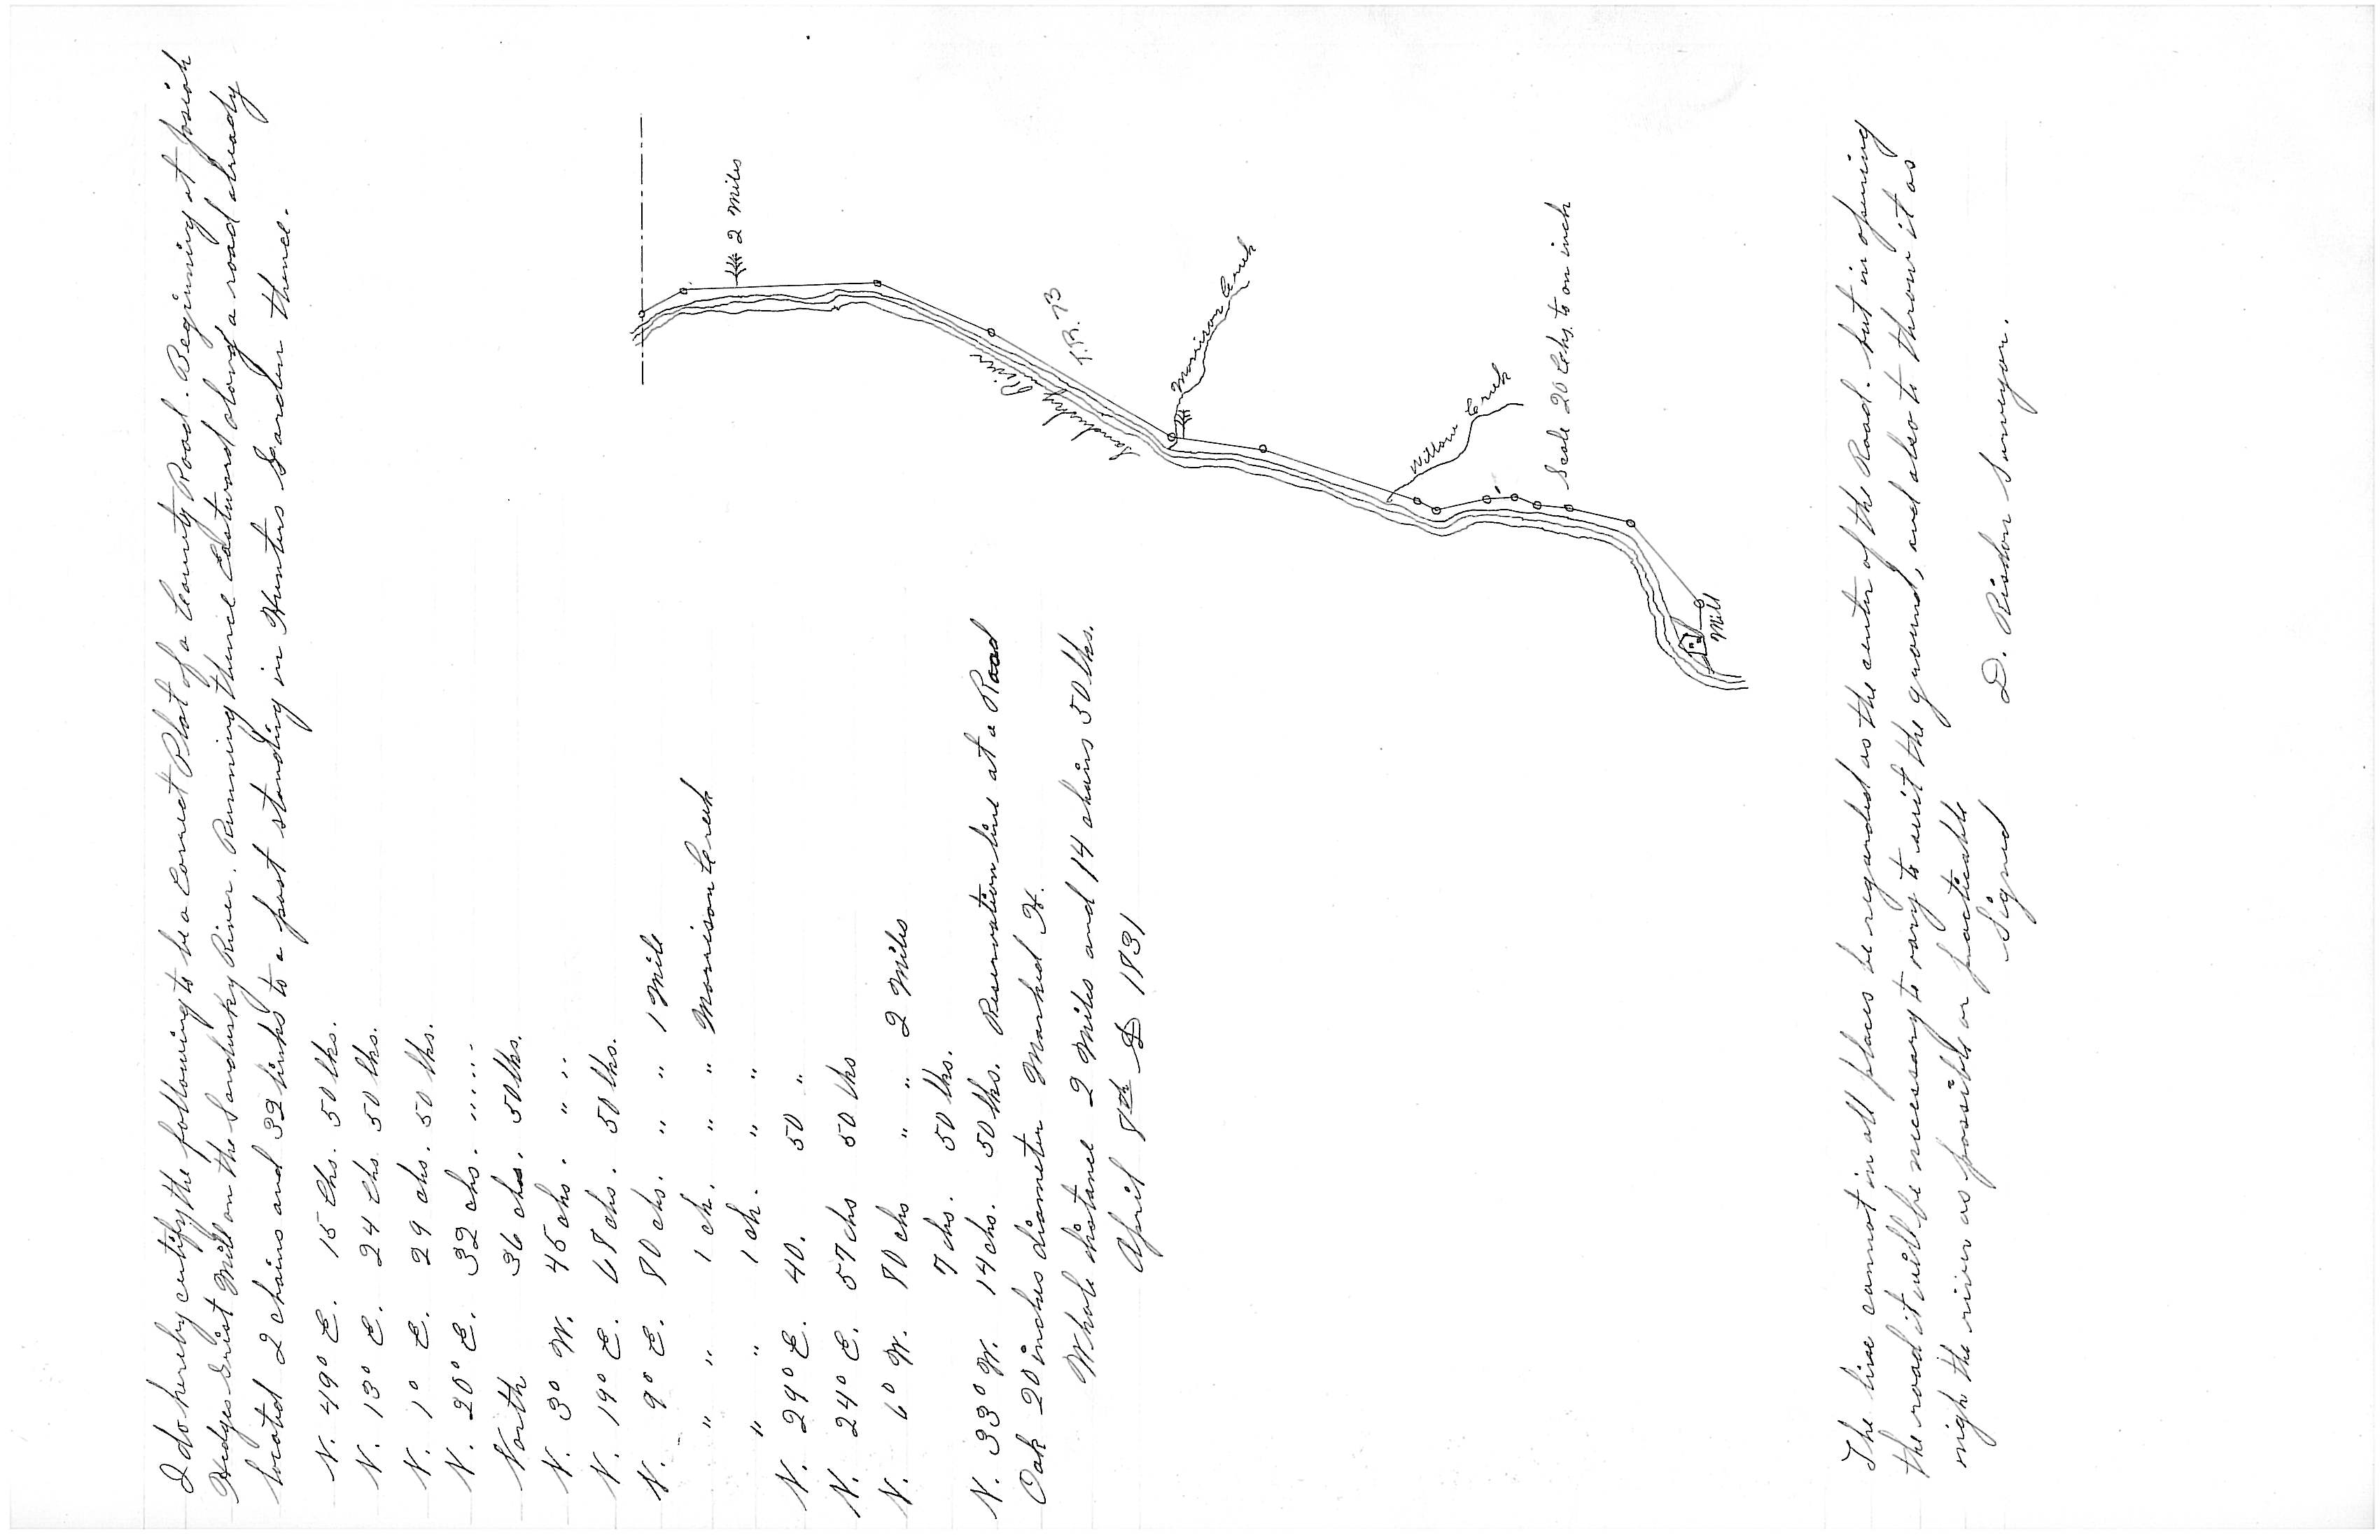 I do hereby certify the following to be a Correct Plat of a County Road. Beginning at Josiah
Hedges Grist Mill on the Sandusky River. Running thence Eastward along a road already
located 2 chains and 32 links to a post standing in Hunters Garden thence.
N. 49° E. 15 Chs. 50 lks.
N. 13° E. 24 Chs. 50 lks.
N. 1° E. 29 chs. 50 lks.
N. 20° E. 32 chs. " " " "
North 36 chs. 50 lks.
N. 3° W. 45 chs. " " "
N. 19° E. 68 chs. 50 lks.
N. 9° E. 80 chs. " " 1 Mile
" " 1 ch. " " Morrison Creek
" " 1 ch. " "
N. 29° E. 40. 50 "
N. 24° E. 57 chs 50 lks
N. 6° W. 80 chs " " 2 Miles
7 chs. 50 lks.
N. 33° W. 14 chs. 50 lks. Reservation line at a Road
Oak 20 inches diameter Marked H.
Whole distance 2 Miles and 14 chains 50 lks.
April 8th 1831
2 Miles
T.R. 73
Sandusky River
Morrison Creek
Willow Creek
Scale 20 Cchs. to on inch
Mill
The line cannot in all places be regarded as the center of the Road. but in opening
the road it will be necessary to vary to suit the ground, and also to throw it as
nigh the river as possible or practicable
Signed
D. Risdon Surveyor.